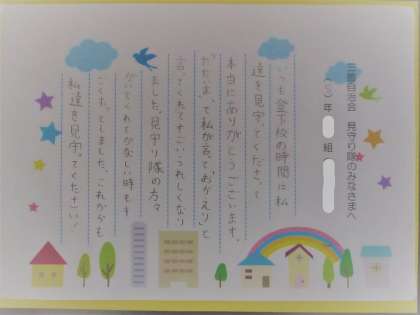 自治会 見守り隊のみなさまへ
(5)年 組
いつも登下校の時間に私
達を見守ってくださって
本当にありがとうございます。
「ただいま」って私が言って「おかえり」と
言ってくれてすごいうれしくなり
ました。見守り隊の方々
がいてくれて ない時もす
ごく としました。これからも
私達を見守ってください！